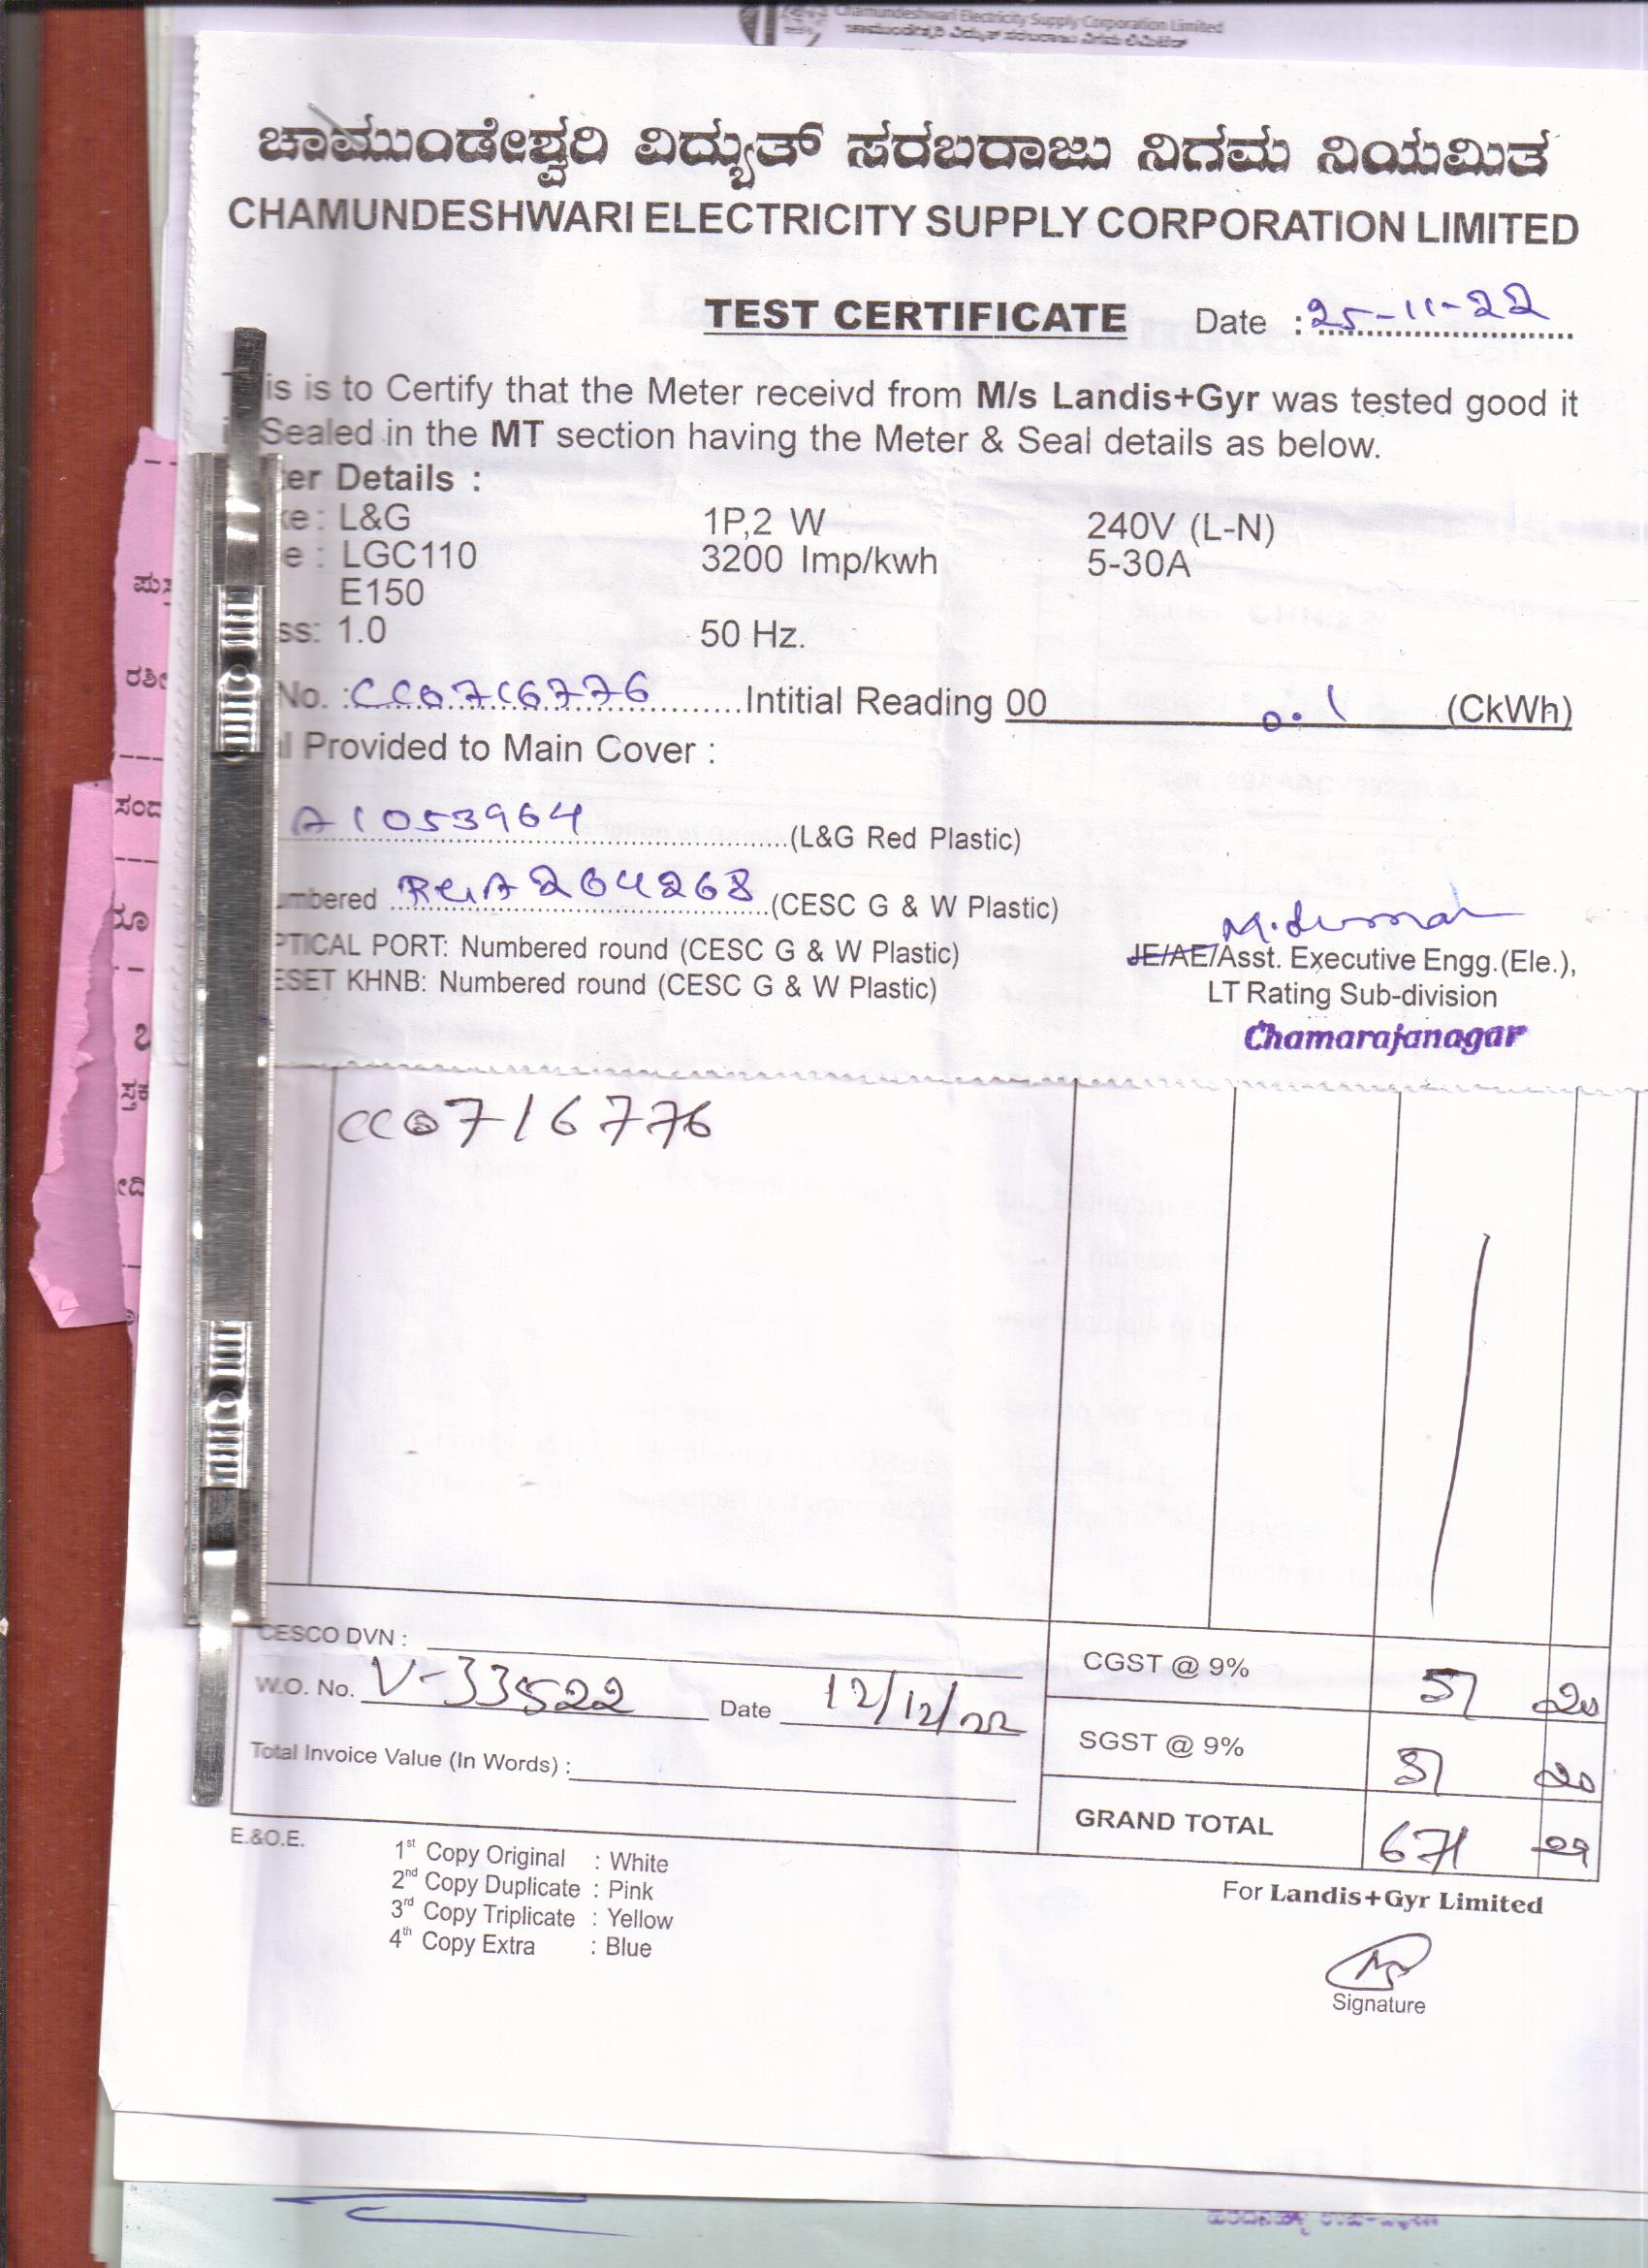 Chamundeshwari Electricity Supply Corporation Limited
ಚಾಮುಂಡೇಶ್ವರಿ ವಿದ್ಯುತ್ ಸರಬರಾಜು ನಿಗಮ ಲಿಮಿಟೆಡ್
ಚಾಮುಂಡೇಶ್ವರಿ ವಿದ್ಯುತ್ ಸರಬರಾಜು ನಿಗಮ ನಿಯಮಿತ
CHAMUNDESHWARI ELECTRICITY SUPPLY CORPORATION LIMITED
TEST CERTIFICATE Date : 25-11-22
is is to Certify that the Meter receivd from M/s Landis+Gyr was tested good it
Sealed in the MT section having the Meter & Seal details as below.
ter Details :
ke : L&G 1P,2 W 240V (L-N)
e : LGC110 3200 Imp/kwh 5-30A
E150
ss: 1.0 50 Hz.
No. : CC0716776 Intitial Reading 00 0.1 (CkWh)
l Provided to Main Cover :
A1053964 (L&G Red Plastic)
umbered 204268 (CESC G & W Plastic)
PTICAL PORT: Numbered round (CESC G & W Plastic)
ESET KHNB: Numbered round (CESC G & W Plastic)
JE/AE/Asst. Executive Engg.(Ele.),
LT Rating Sub-division
Chamarajanagar
CC0716776
CESCO DVN :
W.O. No. V-33522 Date 12/12/22
Total Invoice Value (In Words) :
CGST @ 9% 51 20
SGST @ 9% 51 20
GRAND TOTAL 671
E.&O.E.
1st Copy Original : White
2nd Copy Duplicate : Pink
3rd Copy Triplicate : Yellow
4th Copy Extra : Blue
For Landis+Gyr Limited
Signature